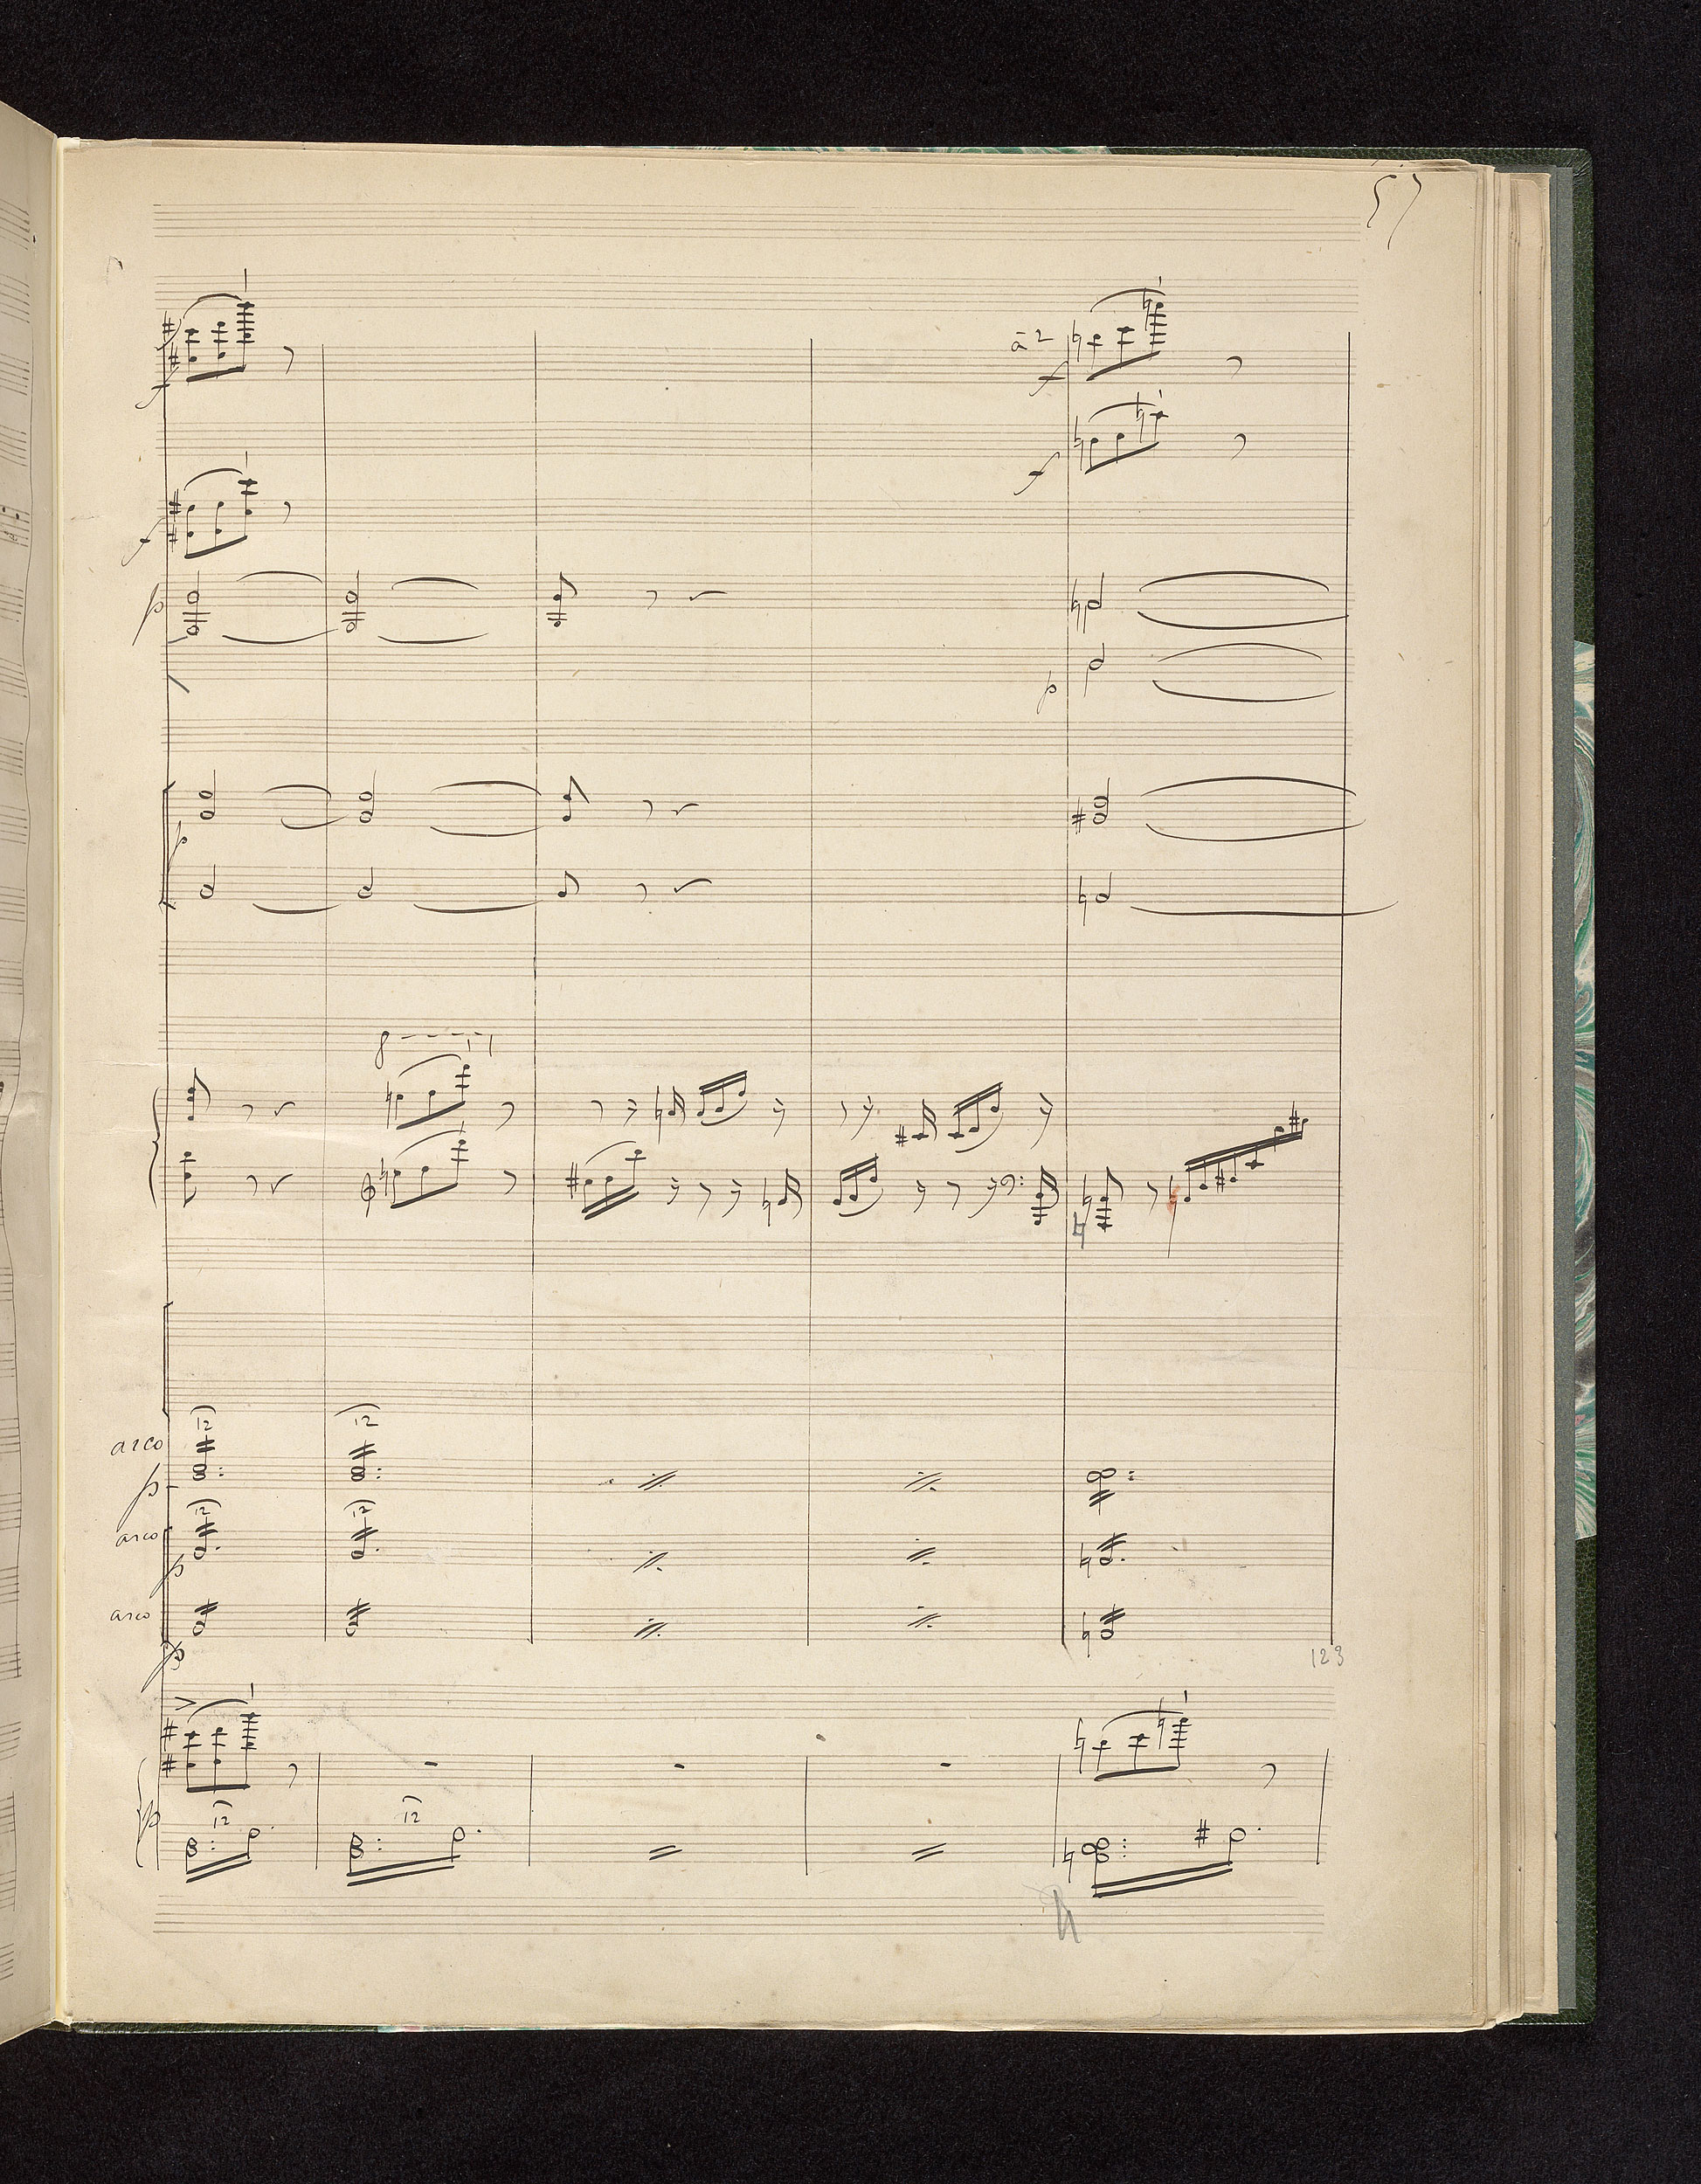 57
à 2
f
f
f
p
p
p
8
12
12
arco
p
12
12
arco
p
arco
p
123
12
12
p